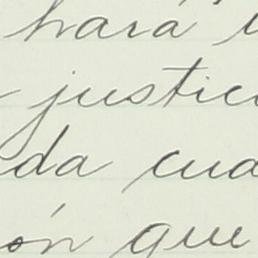 hará
justic
da cua
ón que